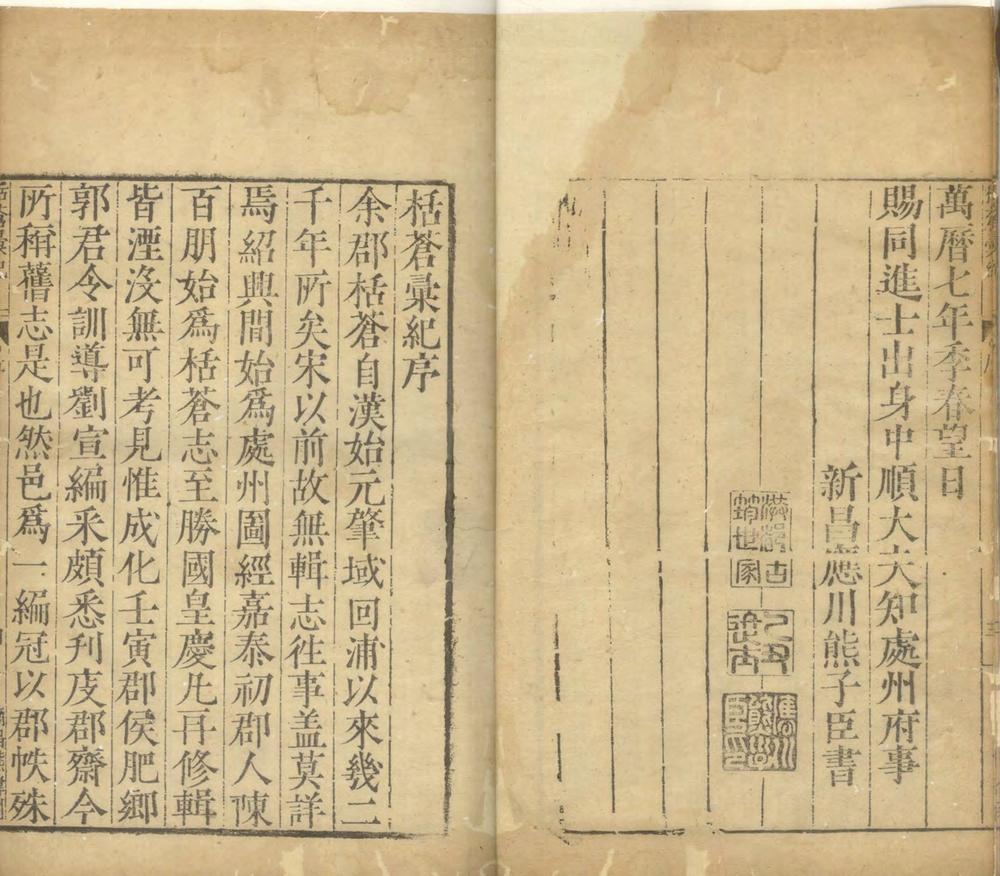 萬曆七年季春望日
賜同進士出身中順大夫知處州府事
新昌應川熊子臣書
栝蒼彙紀序
余郡栝蒼自漢始元肇域回浦以來幾二
千年所矣宋以前故無輯志徃事盖莫詳
焉紹興間始爲處州圖經嘉泰初郡人陳
百朋始爲栝蒼志至勝國皇慶凡再修輯
皆湮沒無可考見惟成化壬寅郡侯肥鄉
郭君令訓導劉宣編釆頗悉刋庋郡齋今
所稱舊志是也然邑爲一編冠以郡帙殊